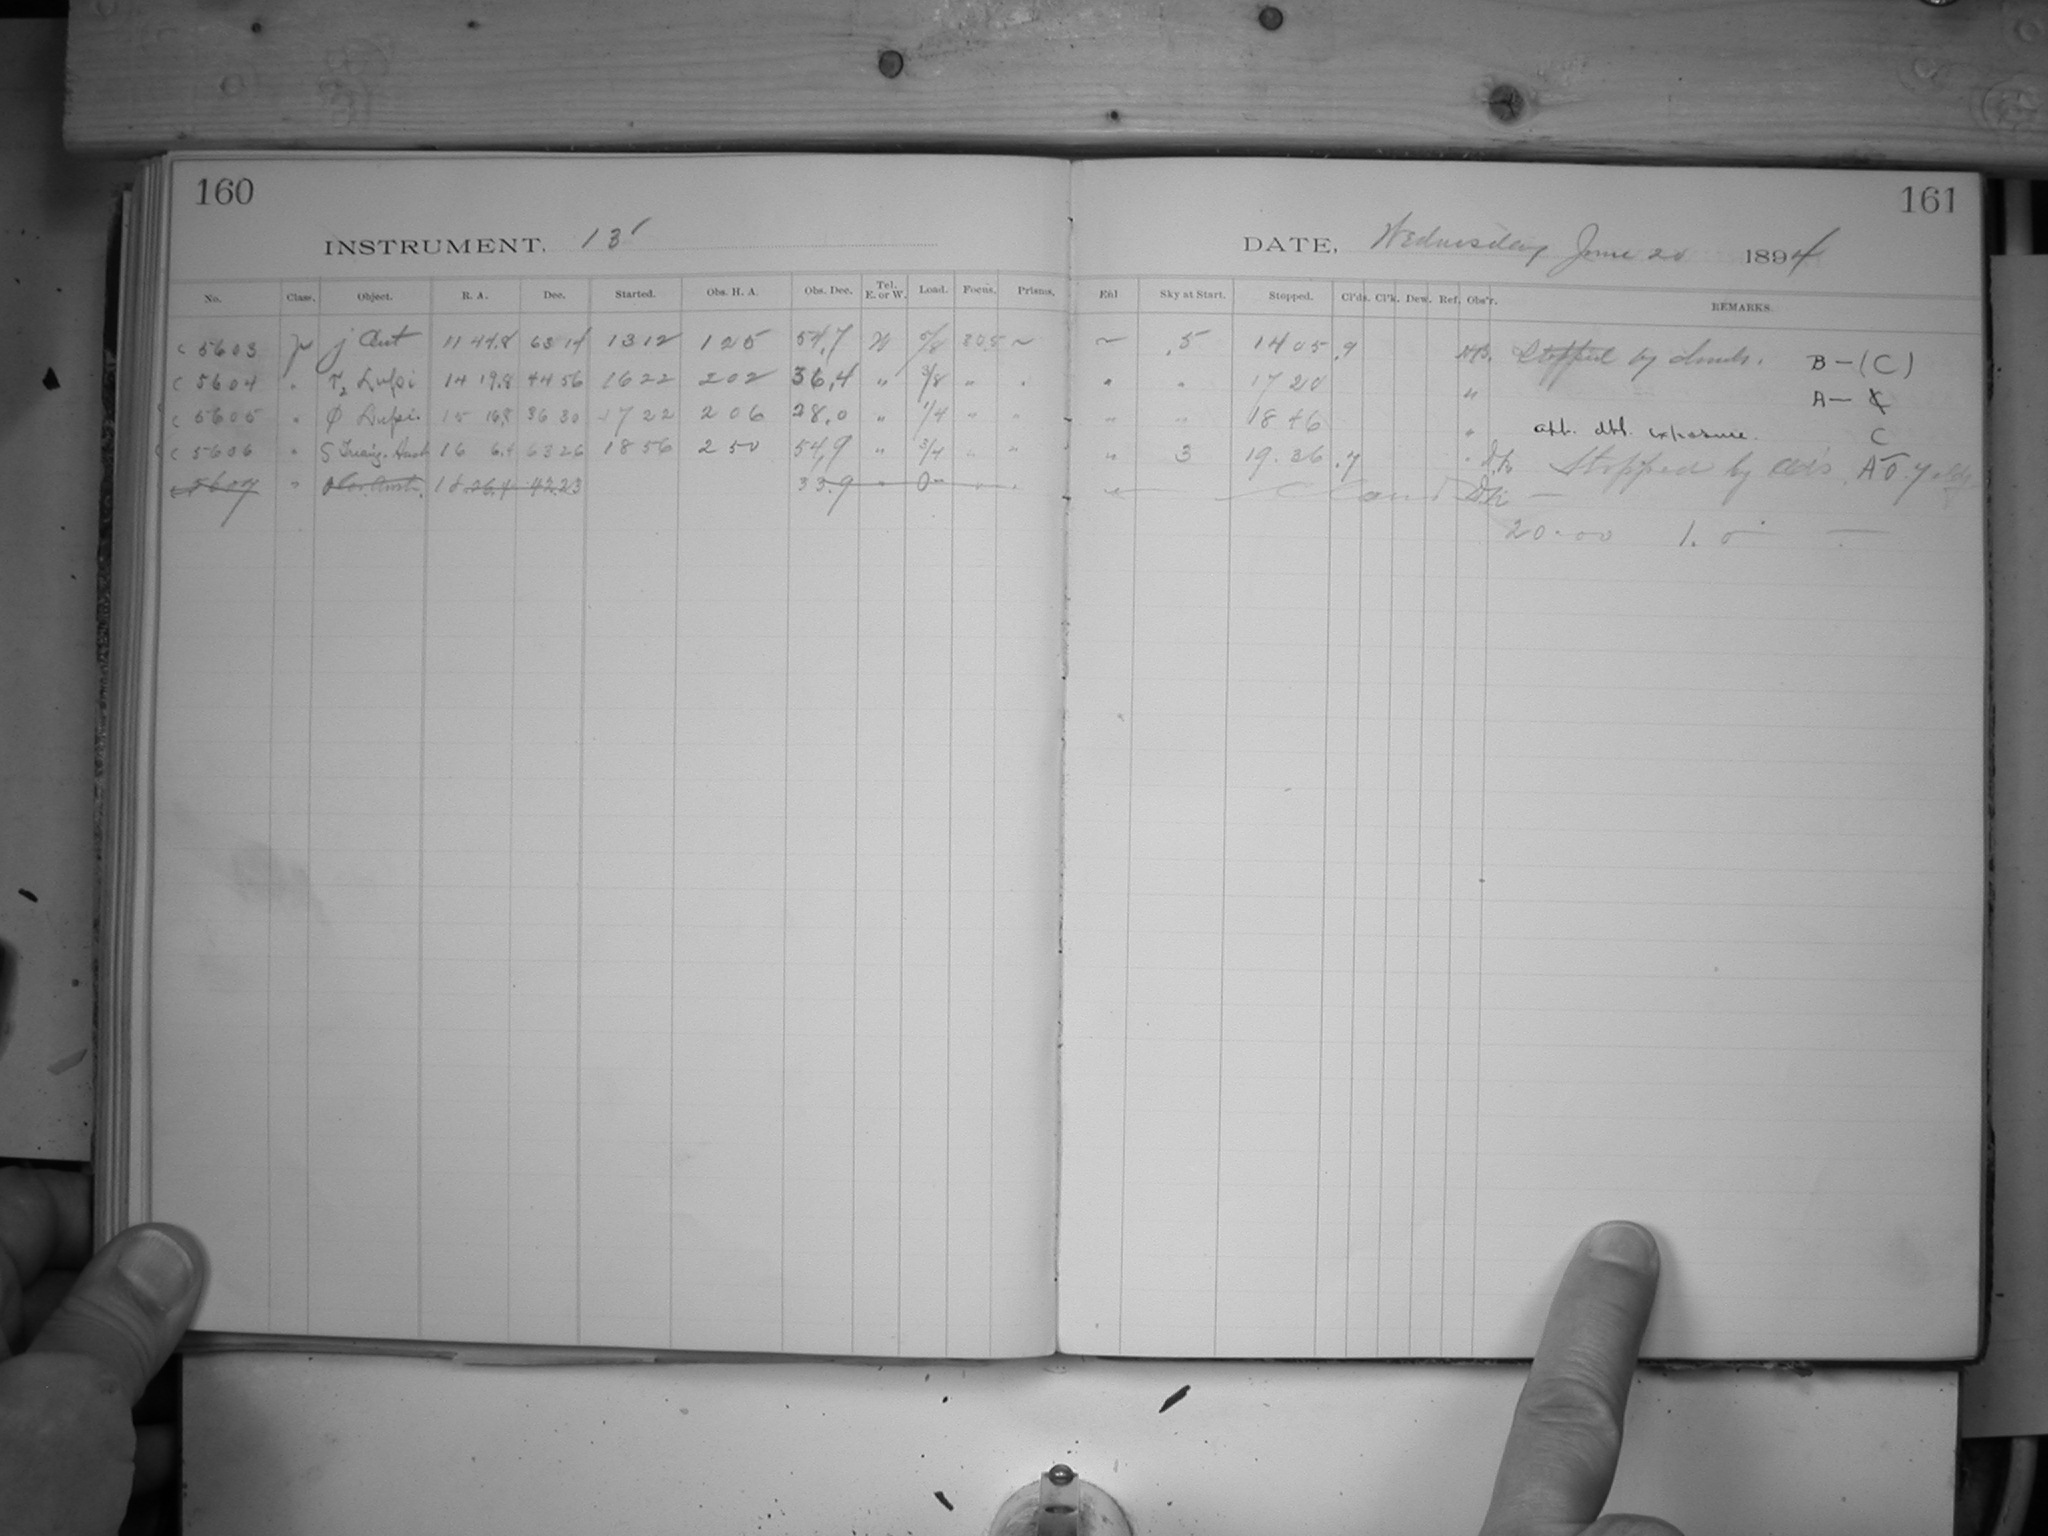 160
INSTRUMENT. 13"
No. Class. Object. R. A. Dec. Started. Obs. H. A. Obs. Dec. Tel. E. or W. Load. Focus. Prisms.
C 5603 j Cent 11 44.8 63 14 13 12 1 25 54,7 W 5/8 30.5 ~
C 5604 " τ2 Lupi 14 19.8 44 56 16 22 2 02 36,4 " 3/8 " "
C 5605 " φ Lupi. 15 16.8 36 30 17 22 2 06 28.0 " 1/4 " "
C 5606 " Triang. Aust 16 6.4 63 26 18 56 2 50 54,9 " 3/4 " "
C 5607 " Cor. Austr. 18 26.4 42.23 33.9 " 0 " "
161
DATE, Wednesday June 20 1894
Enl Sky at Start. Stopped. Cl'ds. Cl'k. Dew. Ref. Obs'r. REMARKS.
~ .5 14 05 .9 Stopped by clouds. B-(C)
" " 17 20 " A- C
" " 18 46 " app. dbl. exposure. C
" 3 19.36 .7 Stopped by
Cloud
20.00